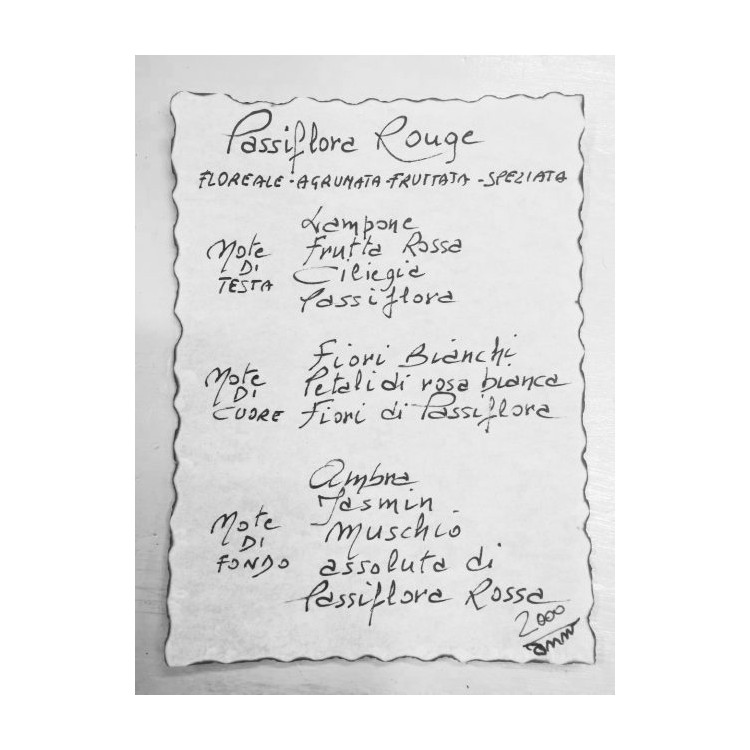 Passiflora Rouge
FLOREALE - AGRUMATA - FRUTTATA - SPEZIATA
Note
DI
TESTA
Lampone
Frutta Rossa
Ciliegia
Passiflora
Note
DI
CUORE
Fiori Bianchi
Petali di rosa bianca
Fiori di Passiflora
Note
DI
FONDO
Ambra
Jasmin
Muschio
assoluta di
Passiflora Rossa
2000
anni